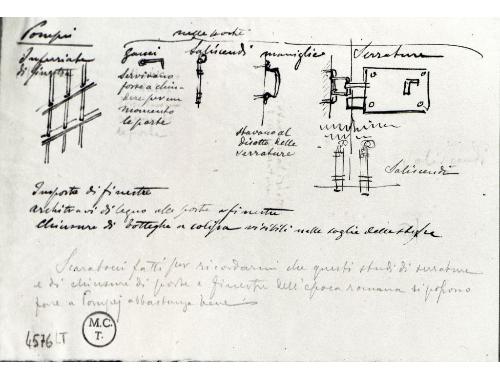 Pompei
nelle porte
Inferriate
di finestre
ganci
saliscendi
maniglie
Serrature
servivano
forse a chiu
dere per un
momento
le porte
le porte
stavano al
disotto delle
serrature
Saliscendi
Imposte di finestre
architravi di legno alle porte e finestre
chiusure di botteghe a colissa visibili nelle soglie delle stesse
Scarabocci fatti per ricordarmi che questi studi di serrature
e di chiusure di porte e finestre dell'epoca romana si possono
fare a Pompej abbastanza bene
4576 LT
M.C.
T.